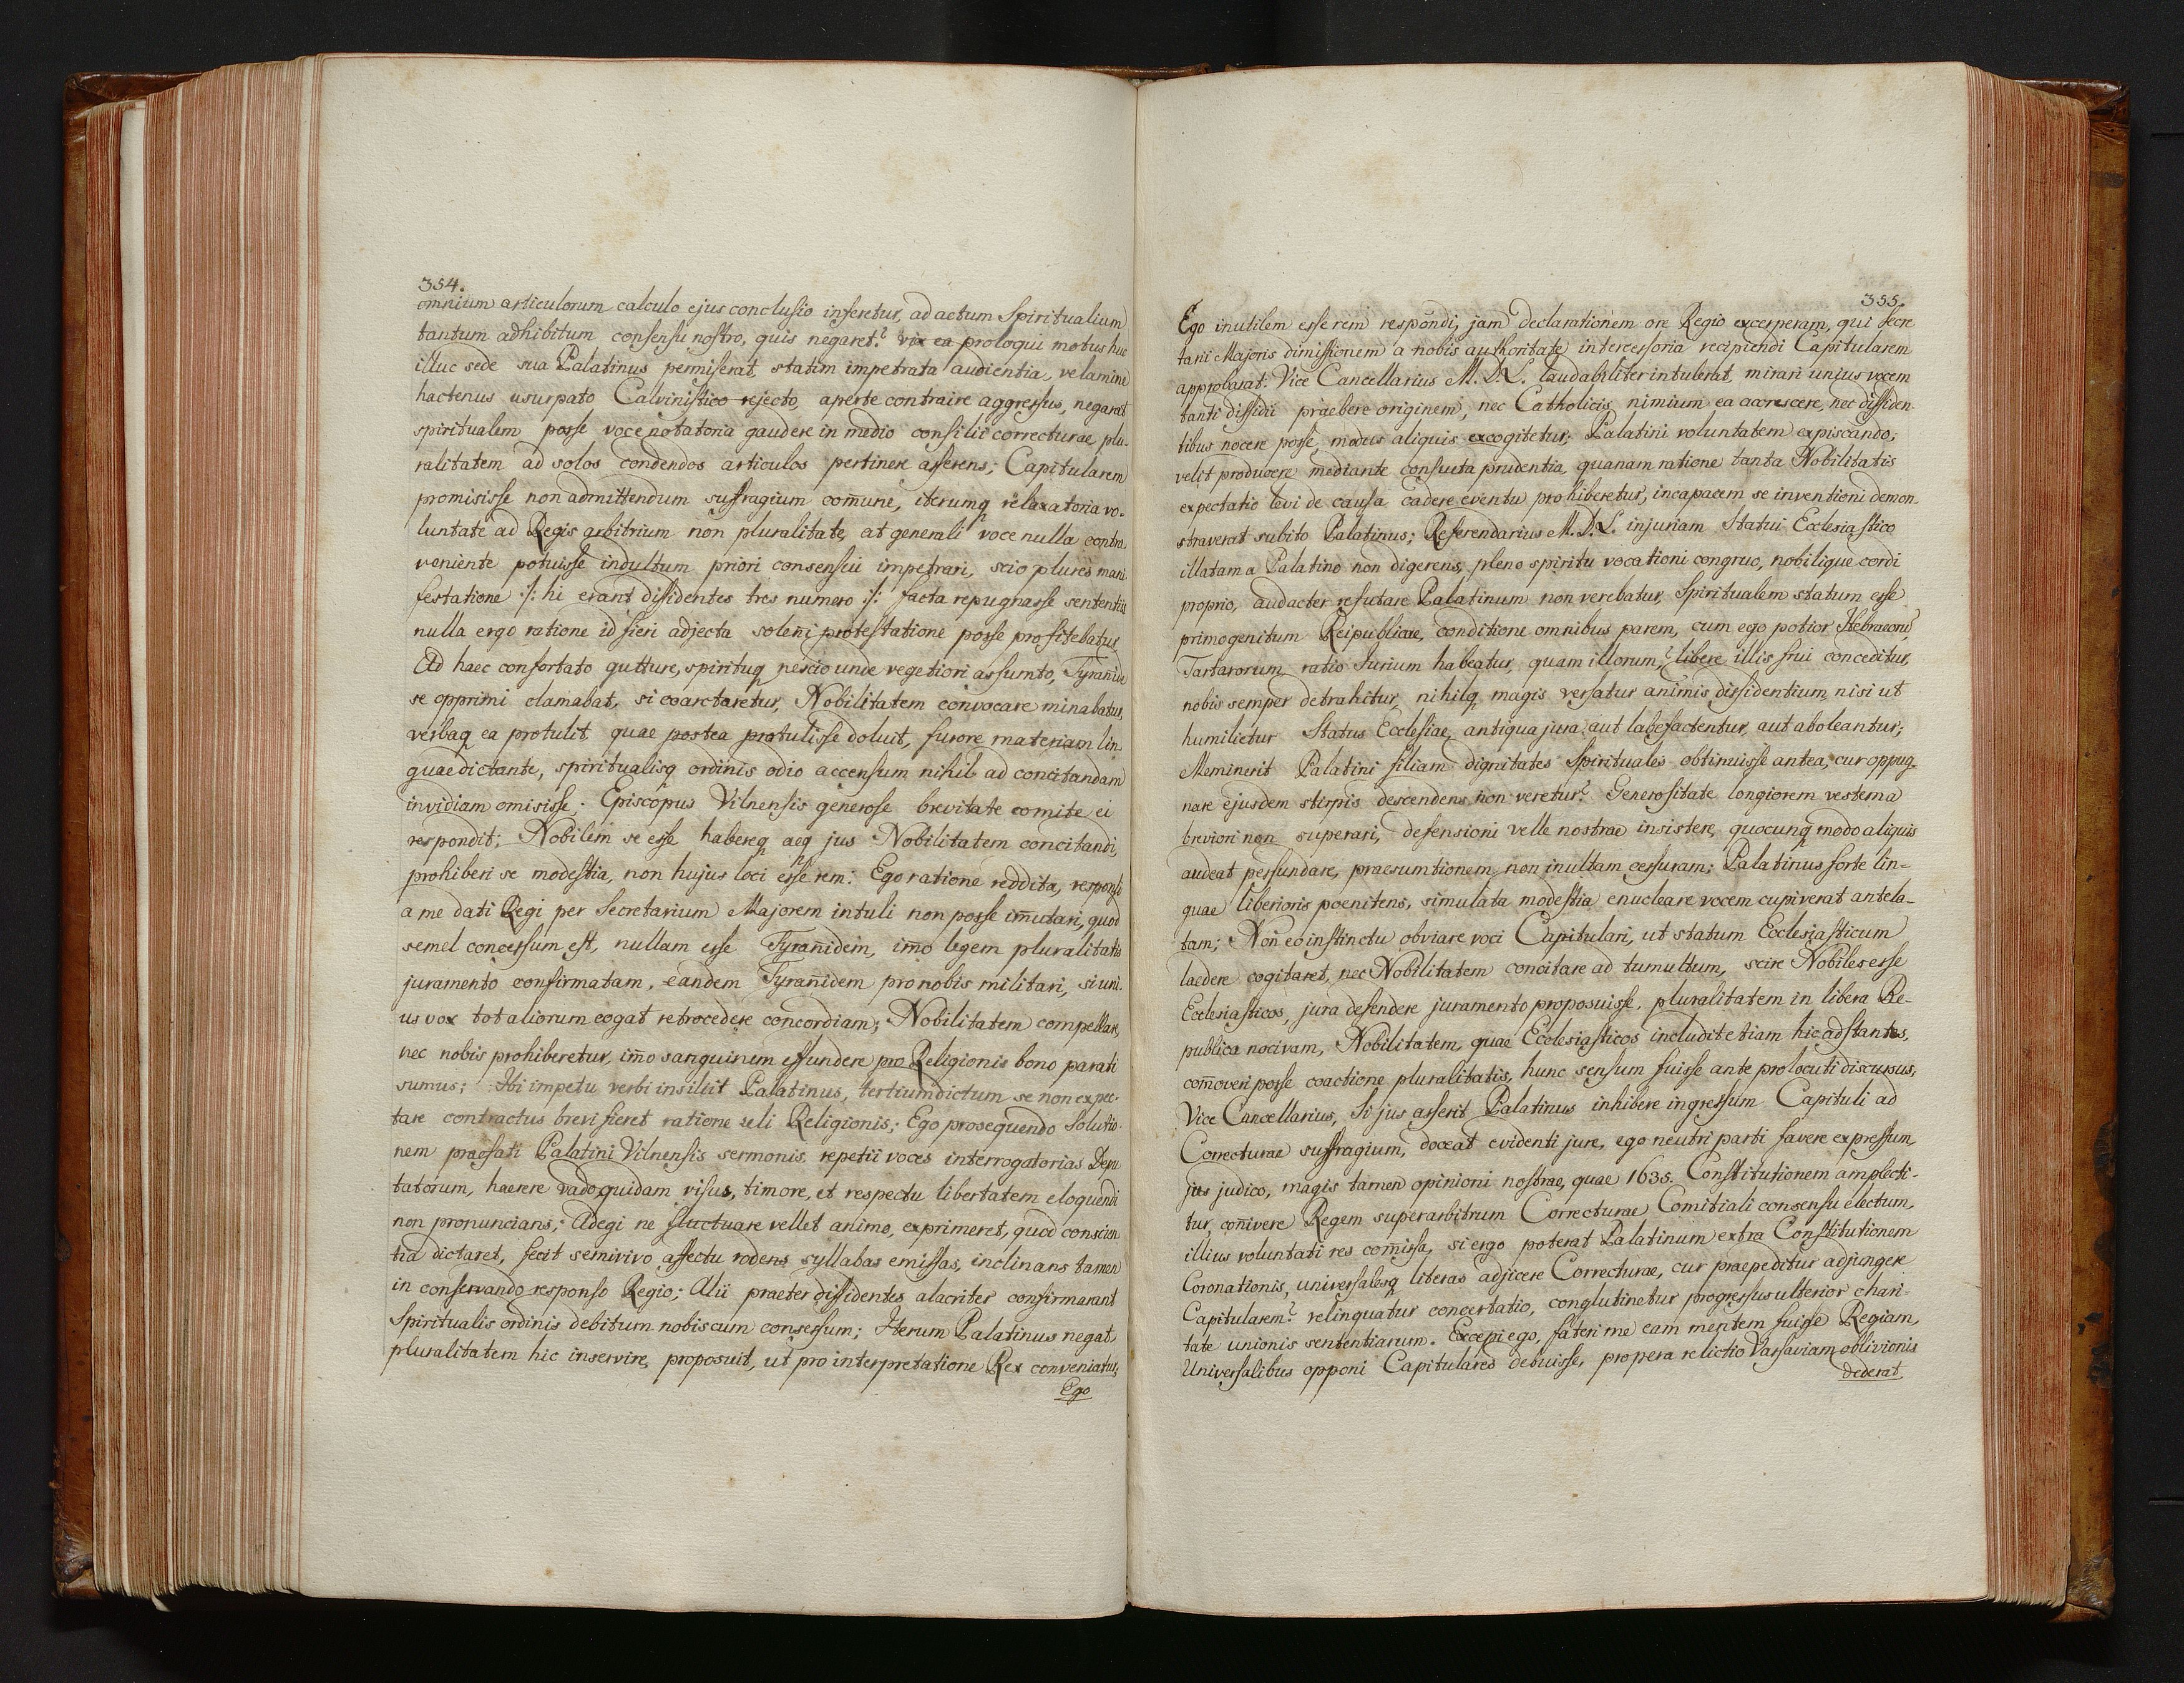 354.
omnium articulorum calculo ejus conclusio inferetur, ad actum Spiritualium
tantum adhibitum consensu nostro, quis negaret? vix ea proloqui motus huc
illuc sede sua Palatinus permiserat, statim impetrata audientia, velamine
hactenus usurpato Calvinistico rejecto, aperte contraire aggressus, negarat
spiritualem posse voce notatoria gaudere in medio consilii correcturae plu-
ralitatem ad solos condendos articulos pertinere asserens; Capitularem
promisisse non admittendum suffragium com̄une, iterumq relaxatoria vo-
luntate ad Regis arbitrium non pluralitate, at generali voce nulla contra
veniente potuisse indultum priori consensui impetrari, scio plures mani
festatione :/: hi erant dissidentes tres numero :/: facta repugnasse sententiis
nulla ergo ratione id fieri adjecta solen̄i protestatione posse profitebatur
Ad haec confortato gutture, spirituq nescio unde vegetiori assumto, Tyranide
se opprimi clamabat, si coarctaretur, Nobilitatem convocare minabatur,
verbaq ea protulit quae postea protulisse doluit, furore materiam lin-
guae dictante, spiritualisq ordinis odio accensum nihil ad concitandam
invidiam omisisse; Episcopus Vilnensis generose brevitate comite ei
respondit; Nobilem se esse habereq aeq jus Nobilitatem concitandi,
prohiberi se modestia, non hujus loci esse rem: Ego ratione reddita, responsi
a me dati Regi per Secretarium Majorem intuli non posse im̄utari, quod
semel concessum est, nullam esse Tyran̄idem, im̄o legem pluralitatis
juramento confirmatam, eandem Tyran̄idem pro nobis militari, si uni-
us vox tot aliorum cogat retrocedere concordiam; Nobilitatem compellare,
nec nobis prohiberetur, im̄o sanguinem effundere pro Religionis bono parati
sumus; Ibi impetu verbi insiliit Palatinus, tertium dictum se non expec-
tare contractus brevi fieret ratione zeli Religionis; Ego prosequendo Solutio-
nem praefati Palatini Vilnensis sermonis repetii voces interrogatorias Depu
tatorum, haerere vado quidam visus, timore, et respectu libertatem eloquendi
non pronuncians; Adegi ne fluctuare vellet animo, exprimeret, quod conscien
tia dictaret, fecit semivivo affectu rodens syllabas emissas, inclinans tamen
in conservando responso Regio; Alii praeter dissidentes alacriter confirmarant
Spiritualis ordinis debitum nobiscum consessum; Iterum Palatinus negat
pluralitatem hic inservire, proposuit, ut pro interpretatione Rex conveniatur;
Ego
355.
Ego inutilem esse rem respondi, jam declarationem ore Regio excerperam, qui Secre
tarii Majoris dimissionem a nobis authoritate intercessoria recipiendi Capitularem
approbarat: Vice Cancellarius M. D. L. laudabiliter intulerat, mirari unius vocem
tanti dissidii praebere originem, nec Catholicis nimium ea accrescere, nec dissiden-
tibus nocere posse, modus aliquis excogitetur; Palatini voluntatem expiscando;
velit producere mediante consueta prudentia, quanam ratione tanta Nobilitatis
expectatio levi de causa cadere eventu prohiberetur, incapacem se inventioni demon-
straverat subito Palatinus; Referendarius M. D. L. injuriam Statui Ecclesiastico
illatam a Palatino non digerens, pleno spiritu vocationi congruo, nobilique cordi
proprio, audacter refutare Palatinum non verebatur, Spiritualem statum esse
primogenitum Reipublicae, conditione omnibus parem, cum ego potior Hebraeorū?
Tartarorum ratio Jurium habeatur, quam illorum? libere illis frui conceditur,
nobis semper detrahitur, nihilq magis versatur animis dissidentium, nisi ut
humilietur Status Ecclesiae, antiqua jura aut labefactentur, aut aboleantur;
Meminerit Palatini filiam dignitates Spirituales obtinuisse antea, cur oppug-
nare ejusdem stirpis descendens non veretur? Generositate longiorem vestem a
breviori non superari, defensioni velle nostrae insistere, quocunq modo aliquis
audeat persundare, praesumtionem non inultam cessuram; Palatinus forte lin-
guae liberioris poenitens, simulata modestia enucleare vocem cupiverat antela-
tam; Non̄ eo instinctu obviare voci Capitulari, ut statum Ecclesiasticum
laedere cogitaret, nec Nobilitatem concitare ad tumultum, scire Nobiles esse
Ecclesiasticos, jura defendere juramento proposuisse, pluralitatem in libera Re-
publica nocivam, Nobilitatem, quae Ecclesiasticos includit etiam hic adstantes,
com̄overi posse coactione pluralitatis, hunc sensum fuisse ante prolocuti discursus;
Vice Cancellarius, Si jus asserit Palatinus inhibere ingressum Capituli ad
Correcturae suffragium, doceat evidenti jure, ego neutri parti favere expressum
jus judico, magis tamen opinioni nostrae, quae 1635. Constitutionem amplecti-
tur, con̄ivere Regem superarbitrum Correcturae Comitiali consensu electum,
illius voluntati res com̄issa, si ergo poterat Palatinum extra Constitutionem
Coronationis, universalesq literas adjicere Correcturae, cur praepeditur adjungere
Capitularem? relinquatur concertatio, conglutinetur progressus ulterior chari-
tate unionis sententiarum. Excepi ego, fateri me eam mentem fuisse Regiam,
Universalibus opponi Capitulares debuisse, propera relictio Varsaviam oblivionis
dederat